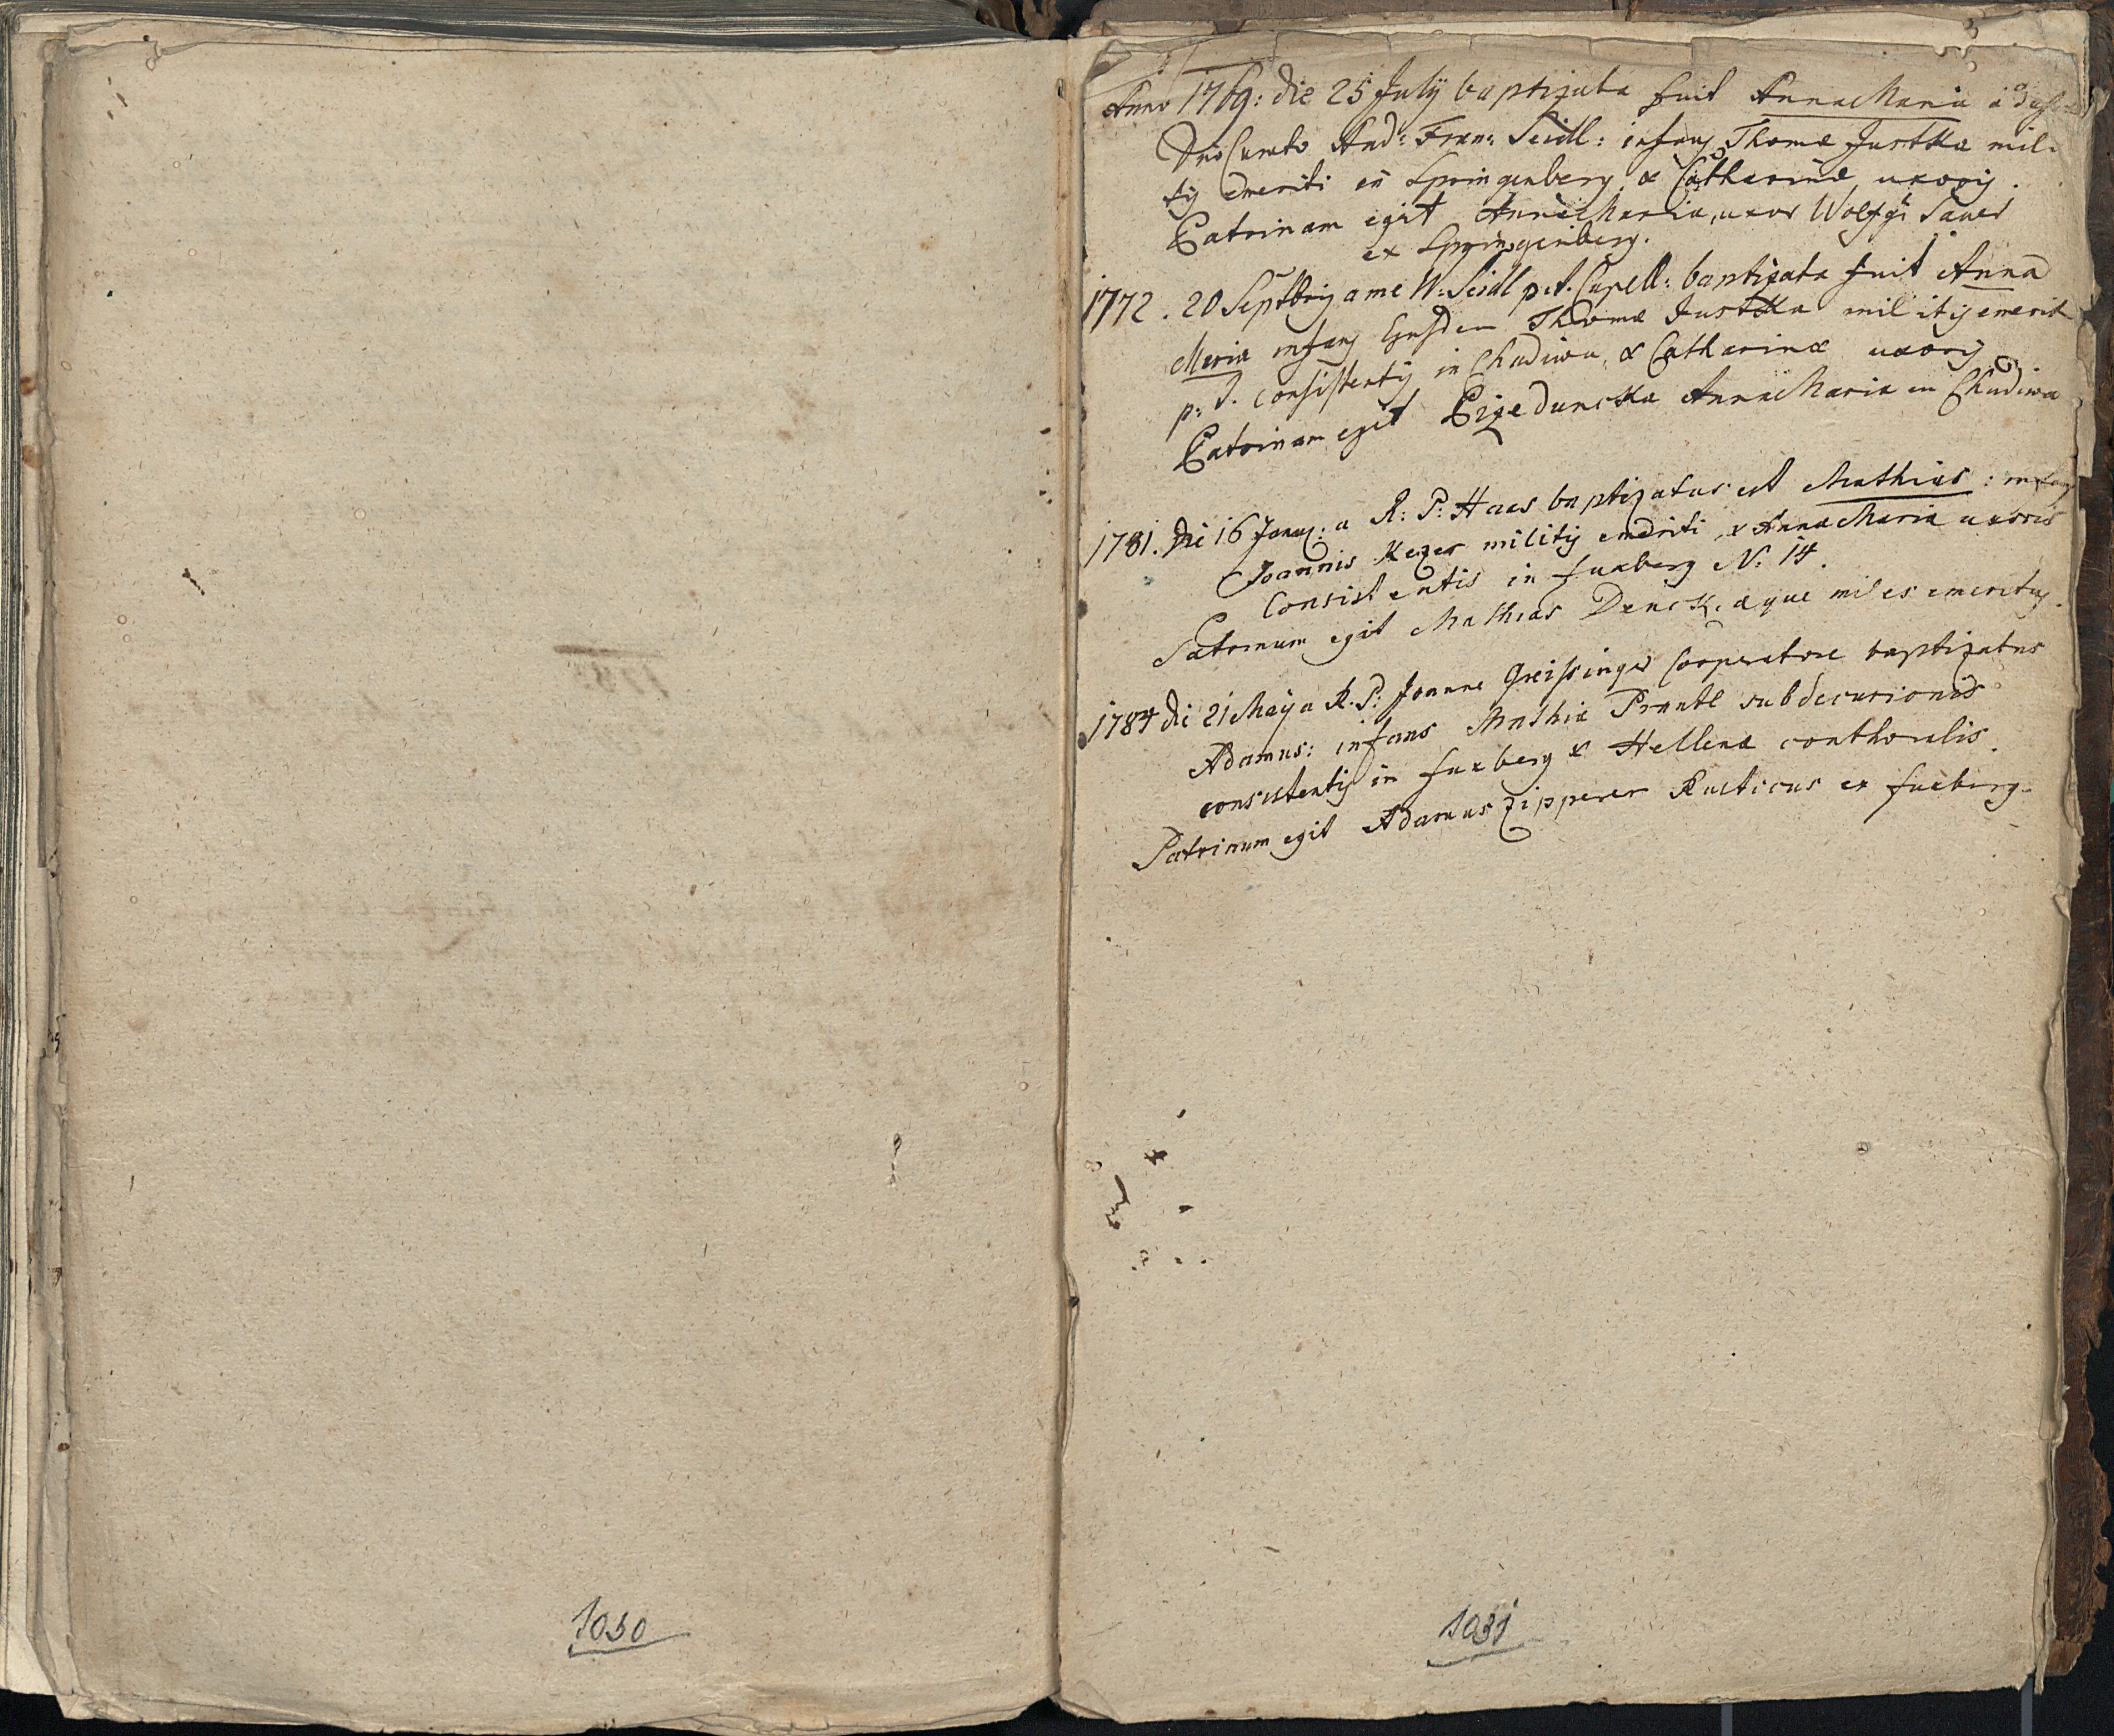 Anno 1769: die 25 July baptizata fuit Anna Maria à
Dno Curato And: Fran: Seidl: infans Thomæ Justka mili
tis emeriti in Springenberg, & Catharinæ uxoris.
Patrinam egit Anna Maria, uxor Wolfgi Sauer
ex Springenberg.
1772. 20 Septbris a me W: Seidl p.t. Capell: baptizata fuit Anna
Maria infans Ejusdem Thomæ Justka militis emerit
p: t. consistentis in Chudiwa, & Catharinæ uxoris
Patrinam egit Anna Maria in Chudiwa
1781. Die 16 Janu: a R: P: Haas baptizatus est Mathias: infans
Joannis Kezer militis emeriti, & Anna Maria uxoris
Consistentis in fuxberg N: 14.
Patrinum egit Mathias Denck, æque miles emeritus.
1784 die 21 May a R. P: Joanne Greissinger Cooperatore baptizatus
Adamus: infans Mathiæ Prantl subdecurionis
consistentis in fuxberg & Hellenæ conthoralis.
Patrinum egit Adamus Zipperer Rusticus ex fuxberg.
1030
1031